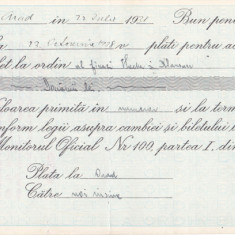 Arad în 22 Iulie 1931 Bun pen
La 22 Octomvrie plăti pentru a
et la ordin al firmei și
Loarea primită în numerar și la term
nform legii asupra cambiei și biletului l
Monitorul Oficial Nr 100, partea I, din
Plata la Arad
Către noi înșine